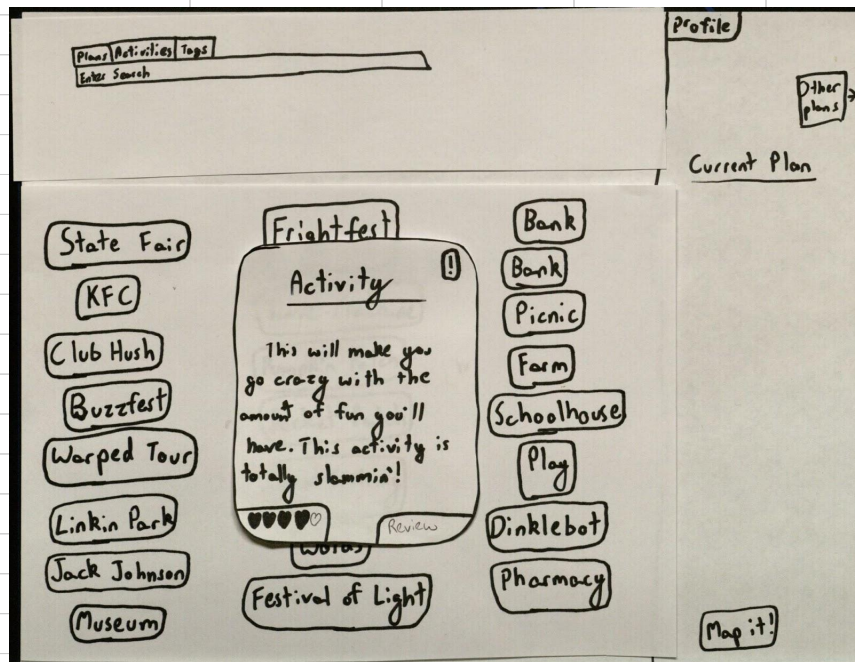 Plans Activities Tags
Enter Search
Profile
Other
plans
Current Plan
State Fair
KFC
Club Hush
Buzzfest
Warped Tour
Linkin Park
Jack Johnson
Museum
Frightfest
!
Activity
This will make you
go crazy with the
amount of fun you'll
have. This activity is
totally slammin'!
Review
Festival of Light
Bank
Bank
Picnic
Farm
Schoolhouse
Play
Dinklebot
Pharmacy
Map it!